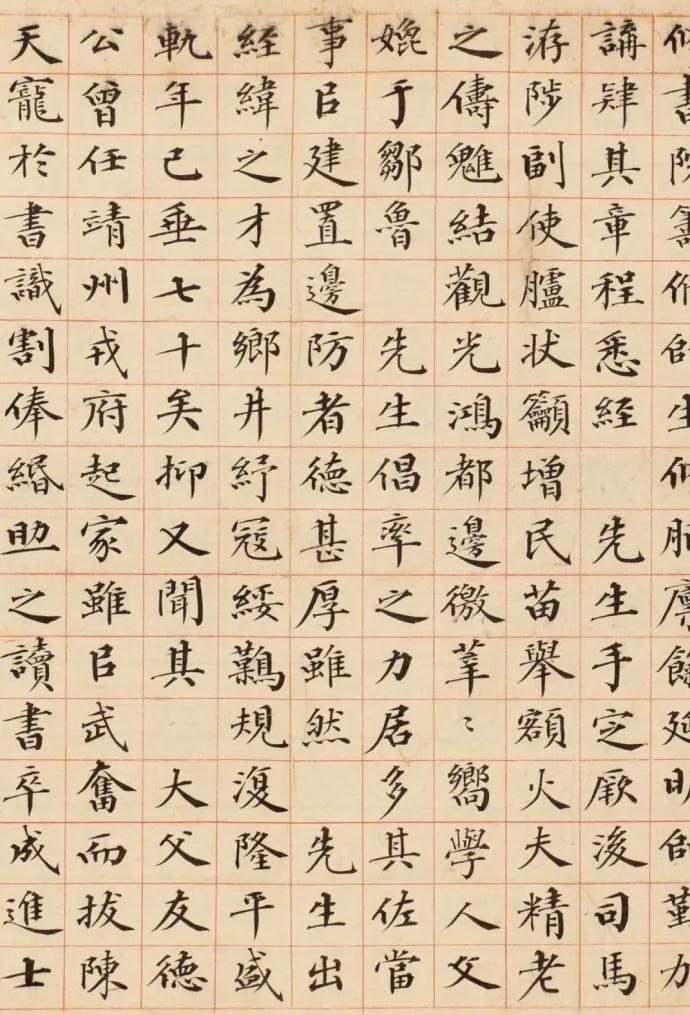 書院籌師生修脯廩餼延明師勤力
講肄其章程悉經 先生手定厥後司馬
洊陟副使臚狀籲增民苗舉額火夫精老
之儔魋結觀光鴻都邊徼莘〻嚮學人文
媲于鄒魯 先生倡率之力居多其佐當
事㠯建置邊防者德甚厚雖然 先生出
經緯之才為鄉井紓寇綏難規復隆平盛
軌年已垂七十矣抑又聞其 大父友德
公曾任靖州戎府起家雖㠯武奮而拔陳
天寵於書識割俸緡助之讀書卒成進士